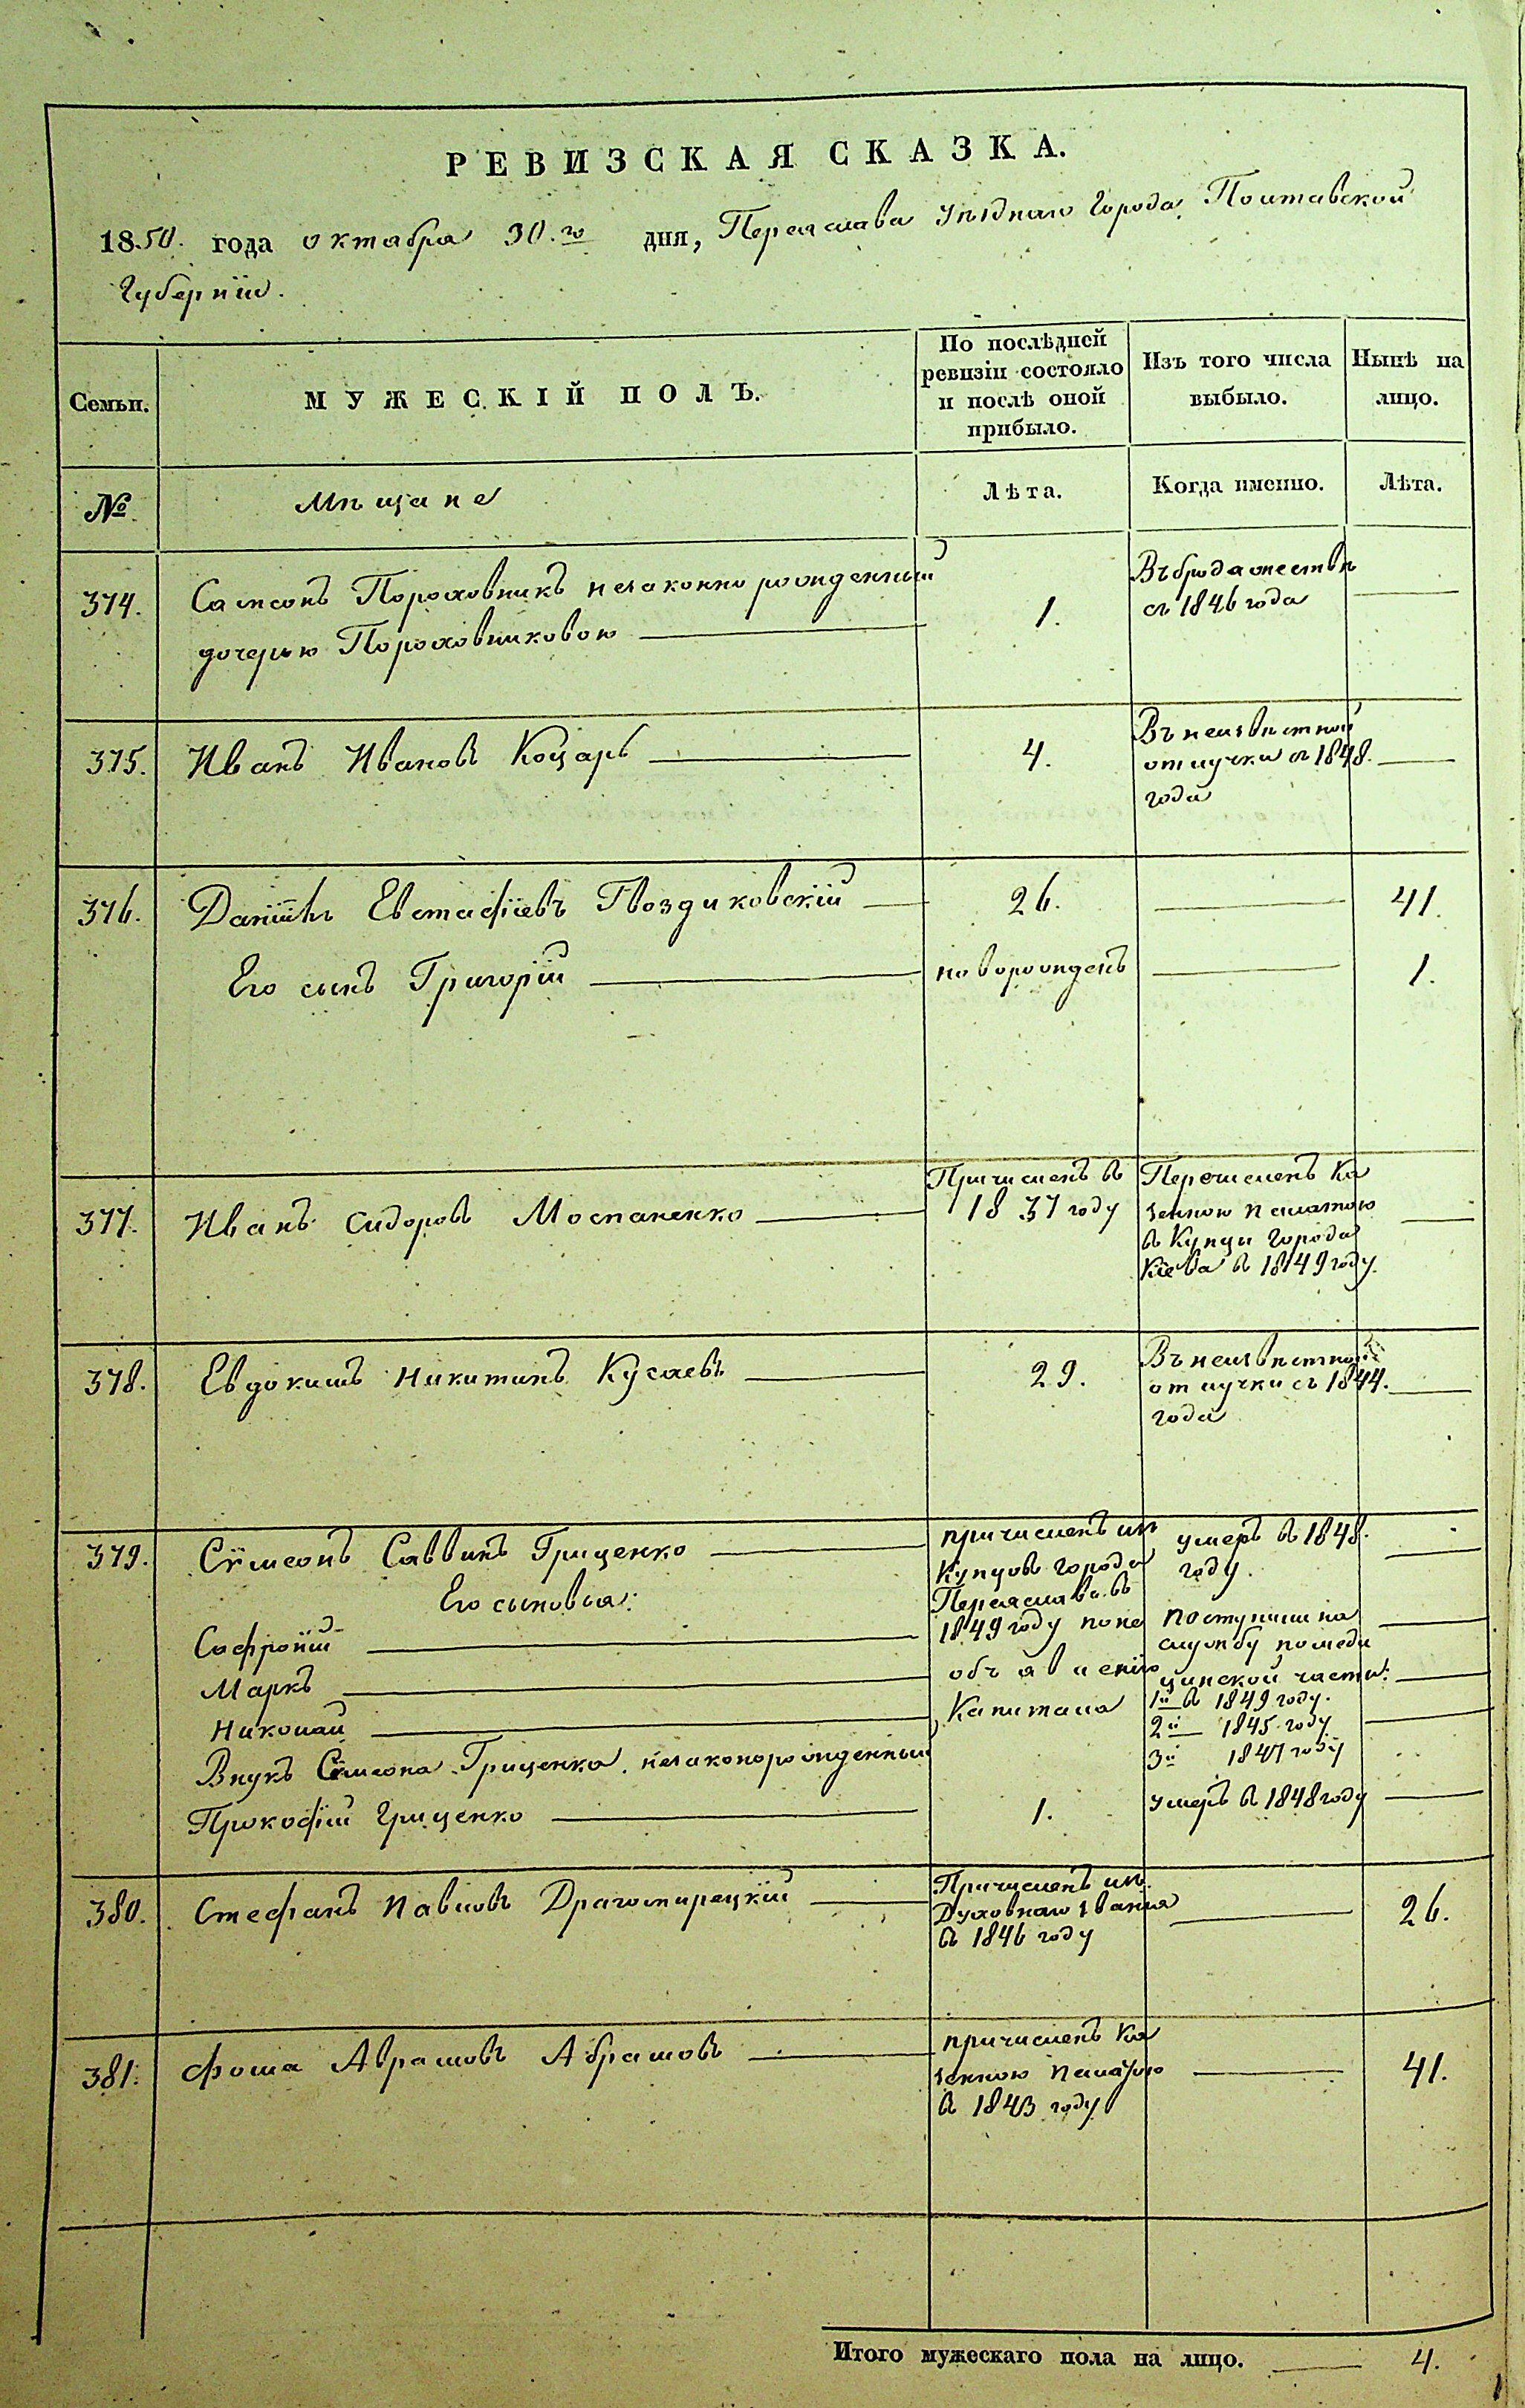 РЕВИЗСКАЯ СКАЗКА.
1850. года октабра 30.го дня, Переяслава уѣзднаго Города Полтавской
Губерніи.
Семьи.
МУЖЕСКІЙ ПОЛЪ.
По послѣдней
ревизіи состояло
и послѣ оной
прибыло.
Изъ того числа
выбыло.
Нынѣ на
лицо.
№
Мѣщане
Лѣта.
Когда именно.
Лѣта.
374.
Самсонъ Пороховникъ незаконно рожденный
дочерью Пороховниковою
1.
Въ бродяжествѣ
съ 1846 года
375.
Иванъ Ивановъ Коцарь
4.
Въ неизвѣстной
отлучки съ 1848.
года
376.
Даніилъ Евстафіевъ Гвоздиковскій
26.
41.
Его сынъ Григорій
новорожденъ
1.
377.
Иванъ Сидоровъ Моспаненко
Причисленъ въ
1837 году
Перечисленъ Ка
зенною палатою
въ Купцы города
Кіева въ 1849 году.
378.
Евдокимъ Никитинъ Кусаевъ
29.
Въ неизвѣстной
отлучки съ 1844.
года
379.
Сѵмеонъ Саввинъ Гриценко
Его сыновья:
Софроній
Маркъ
Николай
Внукъ Сѵмеона Гриценка незаконорожденный
Прокофій Гриценко
причисленъ изъ
Купцовъ города
Переяслава въ
1849 году по не
объявленію
Капитала
1.
умеръ въ 1848.
году.
Поступили на
службу помеди
цинской части:
1й въ 1849 году.
2й 1845 году
3й 1847 году
умеръ въ 1848 году
380.
Стефанъ Павловъ Драгомирецкій
Причисленъ изъ
Духовнаго званія
въ 1846 году
26.
381.
Фома Абрамовъ Абрамовъ
причисленъ Ка
зенною палатою
въ 1843 году
41.
Итого мужескаго пола на лицо.
4.